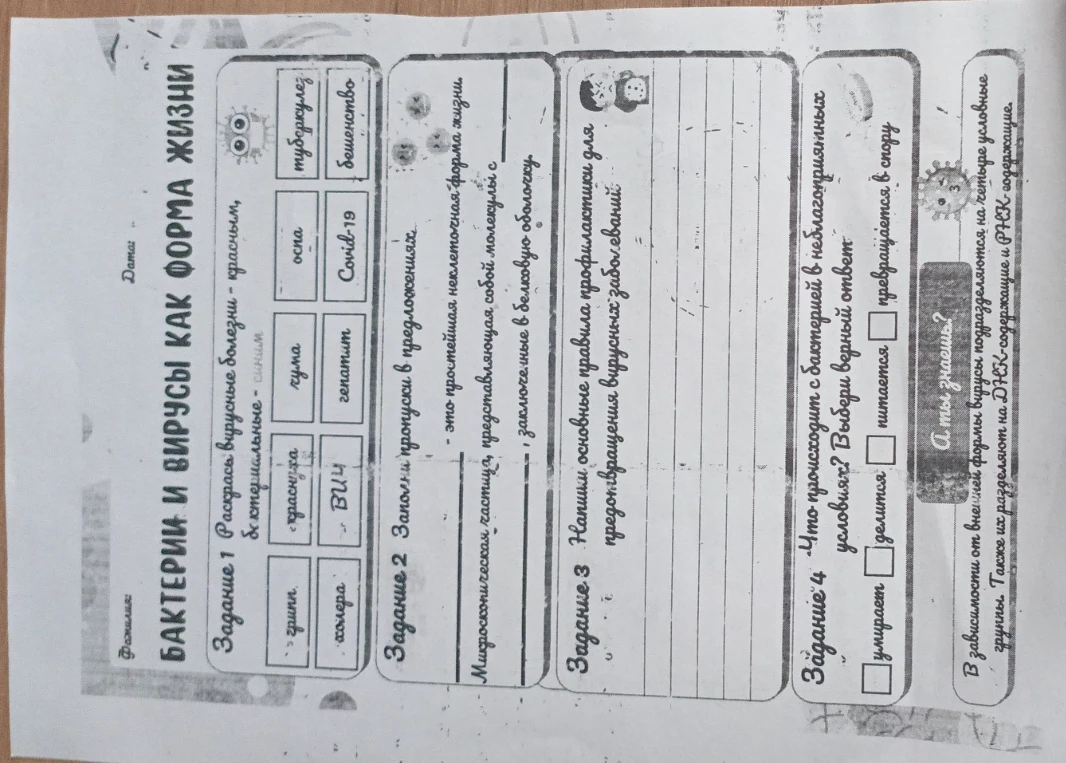 Фамилия: Дата:
БАКТЕРИИ И ВИРУСЫ КАК ФОРМА ЖИЗНИ
Задание 1 Раскрась вирусные болезни - красным,
бактериальные - синим
грипп краснуха чума оспа туберкулез
холера ВИЧ гепатит Covid-19 бешенство
Задание 2 Заполни пропуски в предложениях.
- это простейшая неклеточная форма жизни.
Микроскопическая частица, представляющая собой молекулы с
, заключенные в белковую оболочку.
Задание 3 Напиши основные правила профилактики для
предотвращения вирусных заболеваний
Задание 4 Что происходит с бактерией в неблагоприятных
условиях? Выбери верный ответ
умирает делится питается превращается в спору
А ты знаешь?
В зависимости от внешней формы вирусы подразделяются на четыре условные
группы. Также их разделяют на ДНК-содержащие и РНК-содержащие.